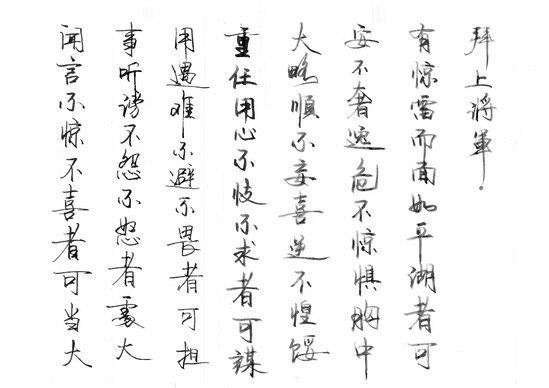 闻言不惊不喜者可当大
事听谤不怨不怒者處大
用遇难不避不畏者可担
重任用心不忮不求者可謀
大略順不妄喜逆不惶馁
安不奢逸危不惊惧胸中
有惊雷而面如平湖者可
拜上將軍。